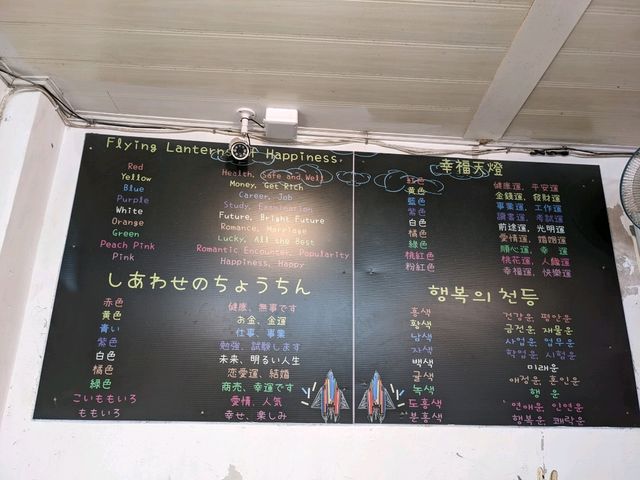 Flying Lanterns of Happiness.
Red Health, Safe and Well
Yellow Money, Get Rich
Blue Career, Job
Purple Study, Examination
White Future, Bright Future
Orange Romance, Marriage
Green Lucky, All the Best
Peach Pink Romantic Encounter, Popularity
Pink Happiness, Happy
しあわせのちょうちん
赤色 健康、無事です
黄色 お金、金運
青い 仕事、事業
紫色 勉強、試験します
白色 未来、明るい人生
橘色 恋愛運、結婚
綠色 商売、幸運です
こいももいろ 愛情、人気
ももいろ 幸せ、楽しみ
幸福天燈
紅色 健康運、平安運
黃色 金錢運、發財運
藍色 事業運、工作運
紫色 讀書運、考試運
白色 前途運、光明運
橘色 愛情運、婚姻運
綠色 順心運、幸 運
桃紅色 桃花運、人緣運
粉紅色 幸福運、快樂運
행복의 천등
홍색 건강운, 평안운
황색 금전운, 재물운
남색 사업운, 업무운
자색 학업운, 시험운
백색 미래운
귤색 애정운, 혼인운
녹색 행 운
도홍색 연애운, 인연운
분홍색 행복운, 쾌락운